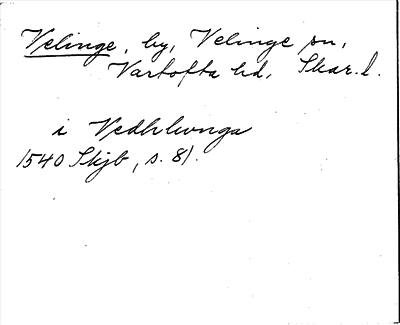 Velinge, by, Velinge sn,
Vartofta hd, Skar. l.
i Vedhlwnga
1540 Skjb, s. 81.